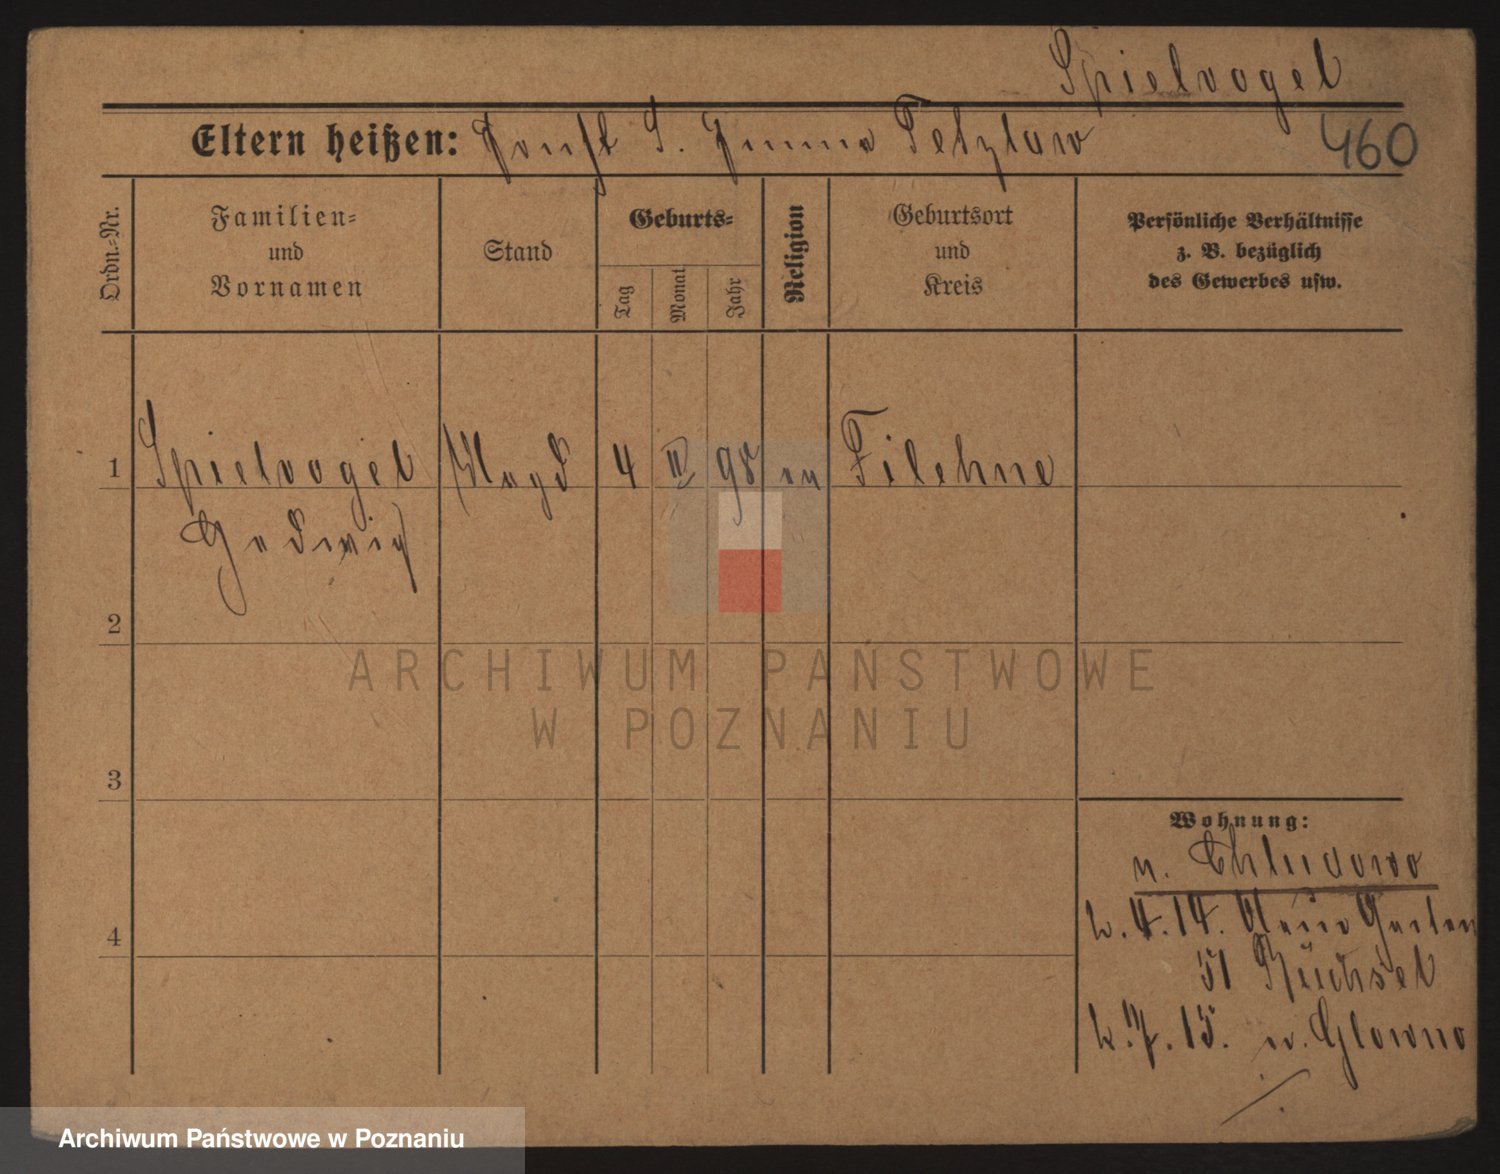 Spielvogel
Eltern heißen: S. Emma Tetzlaw
460
Ordn.-Nr.
Familien-
und
Vornamen
Stand
Geburts-
Tag
Monat
Jahr
Religion
Geburtsort
und
Kreis
Persönliche Verhältnisse
z. B. bezüglich
des Gewerbes usw.
1 Spielvogel Magd 4 II 95 ev Filehne
Hedwig
2
3
4
Wohnung:
n. Chludowo
2.4.14. Neue Garten
51
2.7.15. n. Glowno
ARCHIWUM PAŃSTWOWE
W POZNANIU
Archiwum Państwowe w Poznaniu